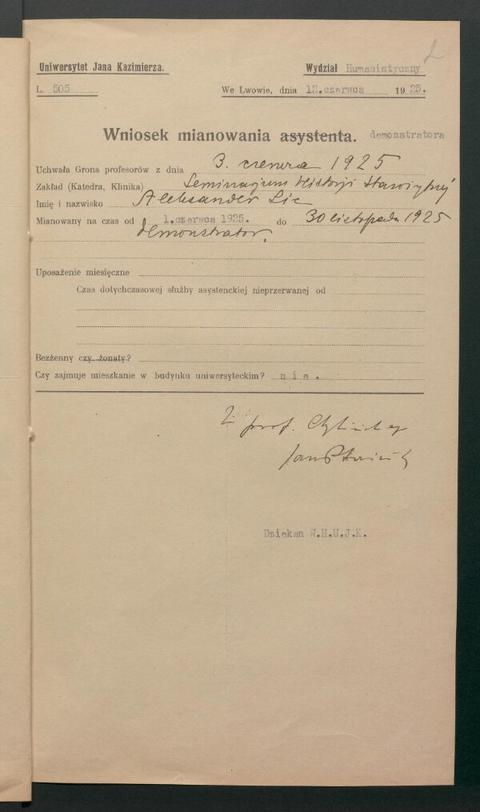 2
Uniwersytet Jana Kazimierza. Wydział Humanistyczny
L. 505 We Lwowie, dnia 12.czerwca 1925.
Wniosek mianowania asystenta. demonstratora
Uchwała Grona profesorów z dnia 3. czerwca 1925
Zakład (Katedra, Klinika) Seminarjum Historji Starożytnej
Imię i nazwisko Aleksander Lic
Mianowany na czas od 1.czerwca 1925. do 30 listopada 1925
demonstrator.
Uposażenie miesięczne
Czas dotychczasowej służby asystenckiej nieprzerwanej od
Bezżenny czy żonaty?
Czy zajmuje mieszkanie w budynku uniwersyteckim? nie.
prof.
Dziekan W.H.U.J.K.